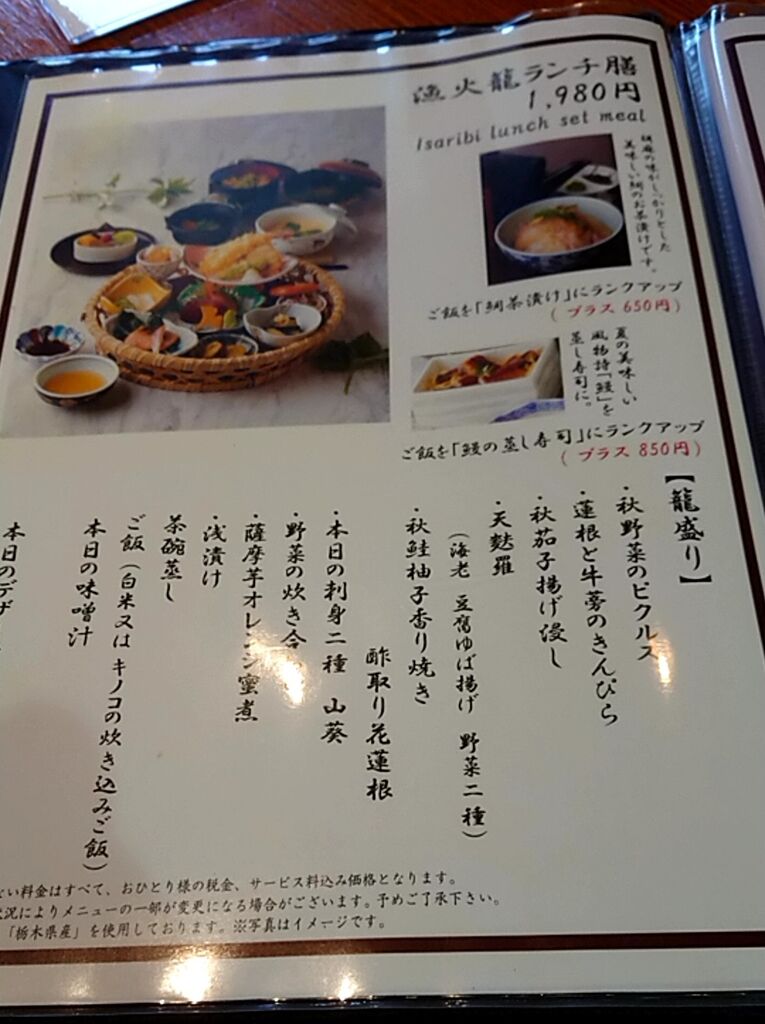 漁火籠ランチ膳
1,980円
Isaribi lunch set meal
胡麻の味がしっかりとした
美味しい鯛のお茶漬けです。
ご飯を「鯛茶漬け」にランクアップ
( プラス 650円)
夏の美味しい
風物詩「鰻」を
蒸し寿司に。
ご飯を「鰻の蒸し寿司」にランクアップ
( プラス 850円)
【籠盛り】
・秋野菜のピクルス
・蓮根と牛蒡のきんぴら
・秋茄子揚げ浸し
・天麩羅
(海老 豆腐ゆば揚げ 野菜二種)
・秋鮭柚子香り焼き
酢取り花蓮根
・本日の刺身二種 山葵
・野菜の炊き合
・薩摩芋オレンジ蜜煮
・浅漬け
茶碗蒸し
ご飯(白米又は キノコの炊き込みご飯)
本日の味噌汁
本日のデザ
い料金はすべて、おひとり様の税金、サービス料込み価格となります。
状況によりメニューの一部が変更になる場合がございます。予めご了承下さい。
「栃木県産」を使用しております。※写真はイメージです。